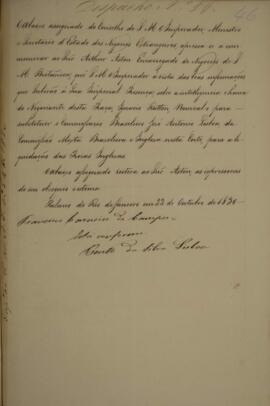 Despacho N. 30.
46
O abaixo assignado do Conselho de S. M. o Imperador, Ministro
e Secretario d'Estado dos Negocios Estrangeiros, apressa-se a com-
municar ao Snr. Arthur Aston Encarregado de Negocios de S.
M. Britannica, que S. M. o Imperador á vista das boas informações
que subirão á Sua Imperial Presença, sobre a intelligencia e honra
do Negociante desta Praça, Ignacio Ratton,
substituir o Commissario Brasileiro José Antonio Lisboa, da
Commissão Mixta Brasileira e Ingleza nesta Corte, para a li-
quidação das Prezas Inglezas.
O abaixo assignado reitera ao Snr. Aston, as expressoens
de sua obsequiosa estima.
Palacio do Rio de Janeiro em 22 de Outubro de 1830
Francisco Carneiro de Campos
Está conforme
Bento da Silva Lisboa